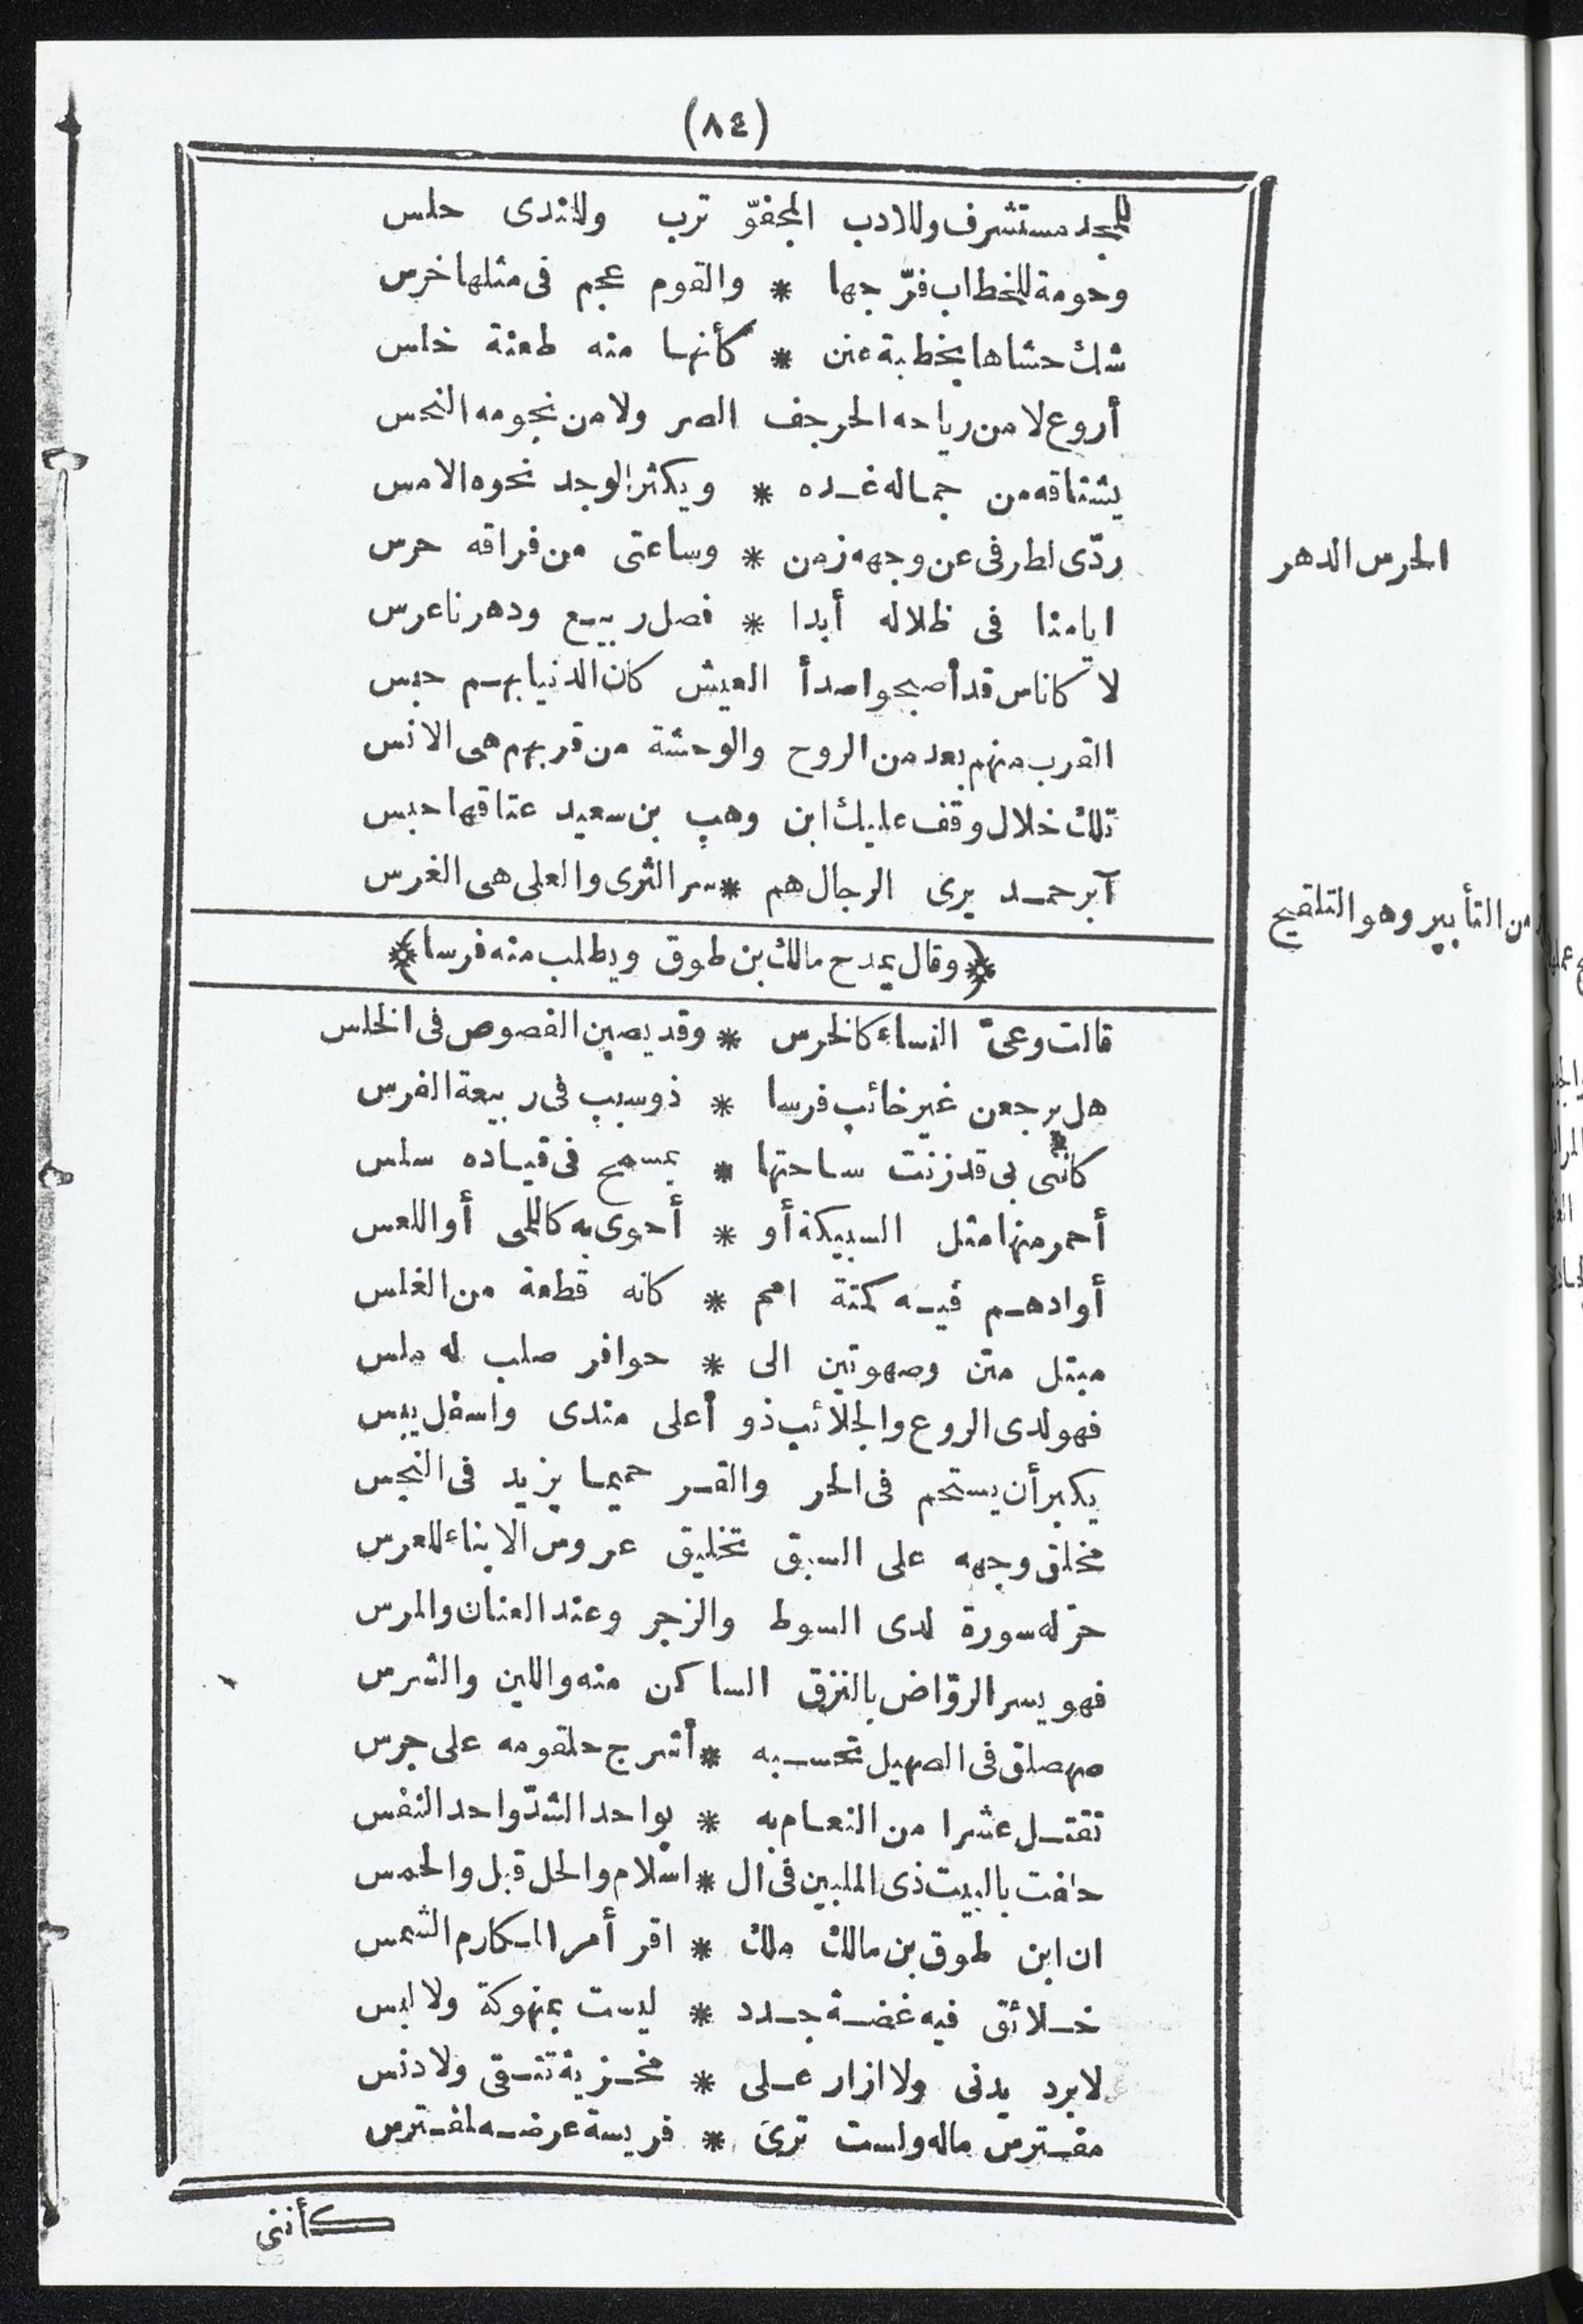 (٨٤)
للمجد مستشرف وللادب المجفوّ ترب وللندى حلس
وحومة للخطاب فرّجها * والقوم عجم فى مثلها خرس
شك حشاها بخطبة عنن * كأنها منه طعنة خلس
أروع لا من رياحه الحرجف الصر ولا من نجومه النحس
يشتاقه من جماله غده * ويكثر الوجد نحوه الامس
ردّى لطرفى عن وجهه زمن * وساعتى من فراقه حرس
الحرس الدهر
ايامنا فى ظلاله أبدا * فصل ربيع ودهرنا عرس
لا كاناس قد أصبحوا صدأ العيش كان الدنيا بهم حبس
القرب منهم بعد من الروح والوحشة من قربهم هى الانس
تلك خلال وقف عليك ابن وهب بن سعيد عتاقها حبس
آبر حمد يرى الرجال هم * سر الثرى والعلى هى الغرس
من التأبير وهو التلقيح
﴿وقال يمدح مالك بن طوق ويطلب منه فرسا﴾
قالت وعىّ النساء كالخرس * وقد يصبن الفصوص فى الخلس
هل يرجعن غير خائب فرسا * ذو سبب فى ربيعة الفرس
كاننى بى قد زنت ساحتها * بمسمح فى قياده سلس
أحمر منها مثل السبيكة أو * أحوى به كاللمى أو اللعس
أو ادهم فيه كمتة امم * كانه قطعة من الغلس
مبتل متن وصهوتين الى * حوافر صلب له ملس
فهو لدى الروع والجلائب ذو أعلى مندى واسفل يبس
يكبر أن يستحم فى الحر والقر حميما يزيد فى النجس
مخلق وجهه على السبق تخليق عروس الابناء للعرس
حرّ له سورة لدى السوط والزجر وعند العنان والمرس
فهو يسر الروّاض بالنزق الساكن منه واللين والشرس
صهصلق فى الصهيل تحسبه * أشرج حلقومه على جرس
تقتل عشرا من النعام به * بواحد الشدّ واحد النفس
حلفت بالبيت ذى الملبين فى ال * اسلام والحل قبل والحمس
ان ابن طوق بن مالك ملك * اقر أمر المكارم الشمس
خلائق فيه غضة جدد * ليست بمنهوكة ولا لبس
لا برد يدنى ولا ازار على * مخزية تتقى ولا دنس
مفترس ماله ولست ترى * فريسة عرضه لمفترس
كأننى